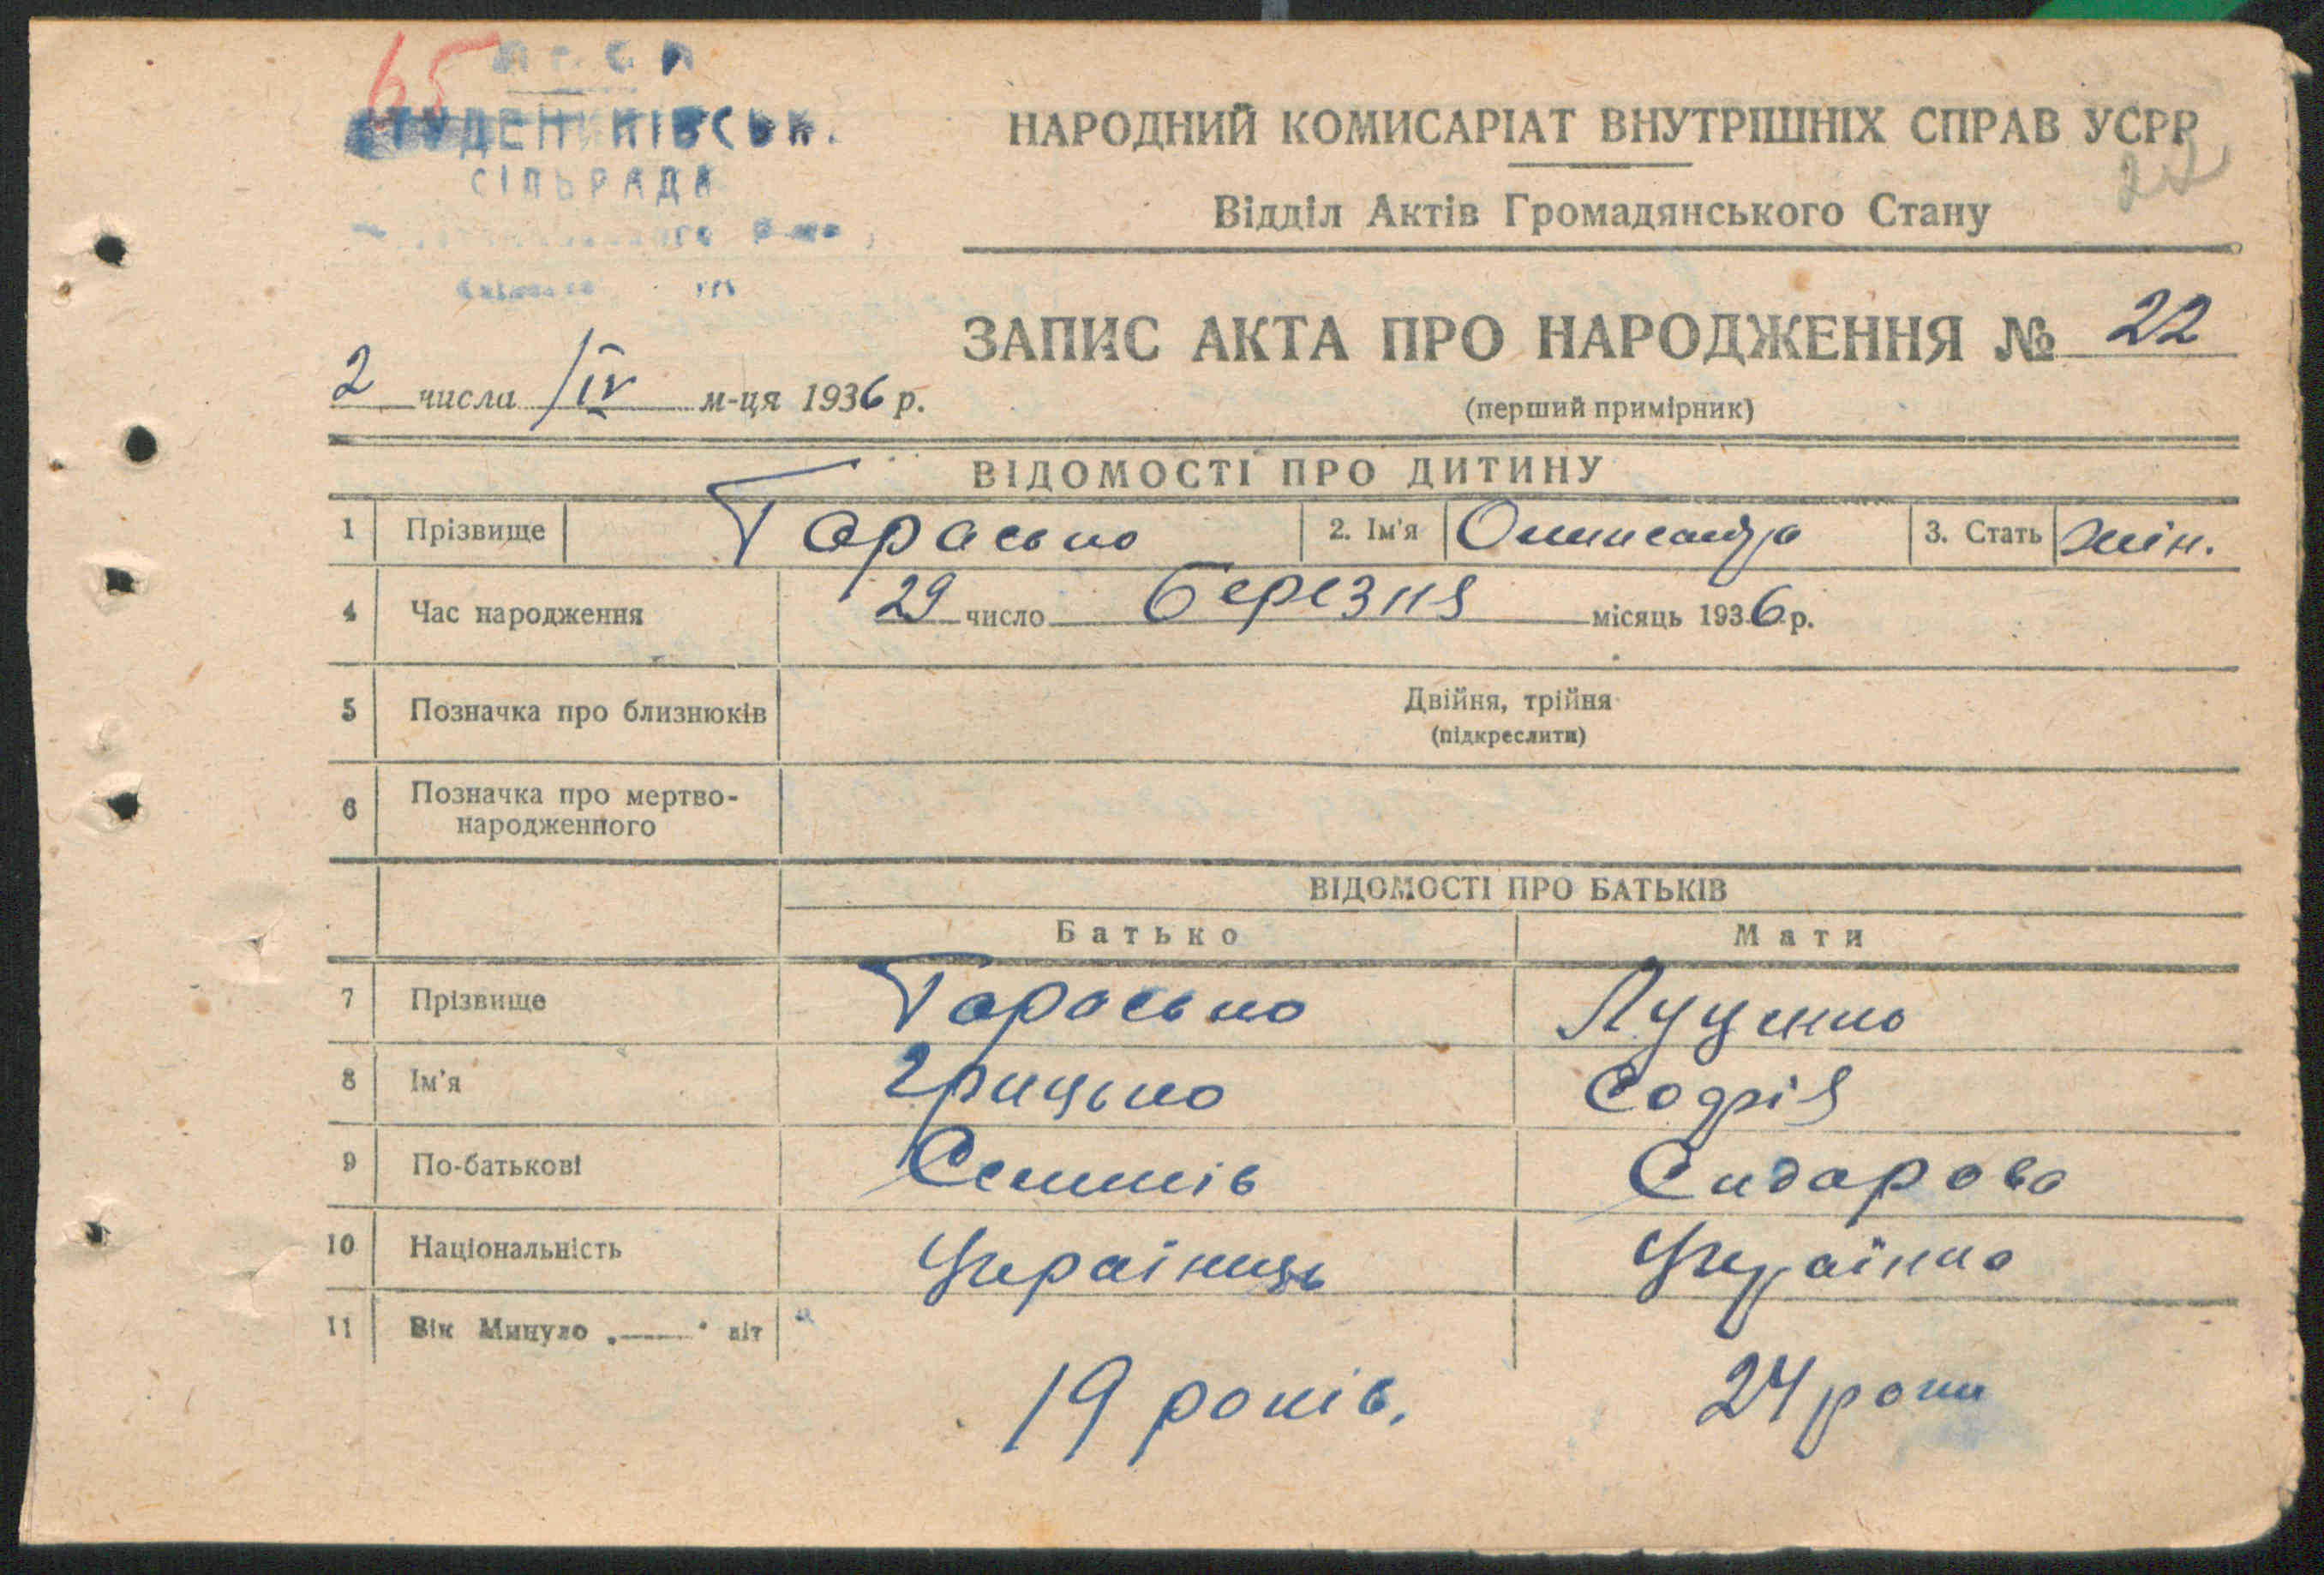 65
СТУДЕНИКІВСЬК.
СІЛЬРАДА
НАРОДНИЙ КОМИСАРІАТ ВНУТРІШНІХ СПРАВ УСРР
22
Відділ Актів Громадянського Стану
ЗАПИС АКТА ПРО НАРОДЖЕННЯ № 22
2 числа /IV м-ця 1936 р.
(перший примірник)
ВІДОМОСТІ ПРО ДИТИНУ
1 Прізвище Тарасько 2. Ім'я Олександра 3. Стать жін.
4 Час народження 29 число березня місяць 1936 р.
5 Позначка про близнюків Двійня, трійня
(підкреслити)
6 Позначка про мертво-
народженного
ВІДОМОСТІ ПРО БАТЬКІВ
Батько Мати
7 Прізвище Тарасько Луценко
8 Ім'я Грицько Софія
9 По-батькові Семенів Сидарова
10 Національність Українець Українка
11 Вік Минуло „—“ літ
19 років. 24 роки